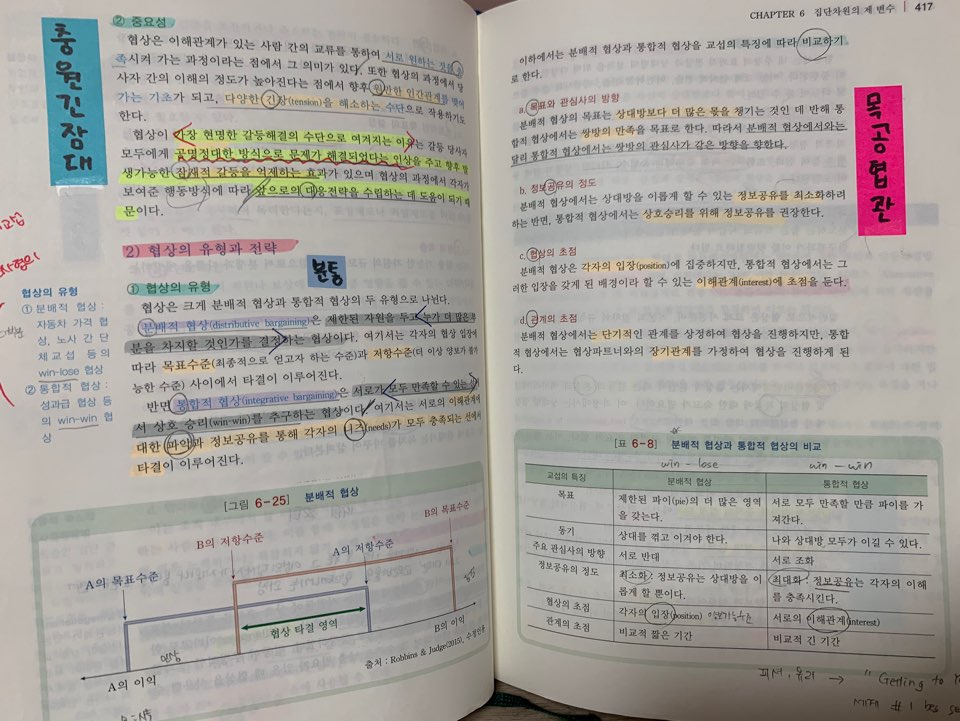 충원긴잠대
② 중요성
협상은 이해관계가 있는 사람 간의 교류를 통하여 서로 원하는 것을 충
족시켜 가는 과정이라는 점에서 그 의미가 있다. 또한 협상의 과정에서 당
사자 간의 이해의 정도가 높아진다는 점에서 향후 원만한 인간관계를 맺어
가는 기초가 되고, 다양한 긴장(tension)을 해소하는 수단으로 작용하기도
한다.
협상이 가장 현명한 갈등해결의 수단으로 여겨지는 이유는 갈등 당사자
모두에게 공명정대한 방식으로 문제가 해결되었다는 인상을 주고 향후 발
생가능한 잠재적 갈등을 억제하는 효과가 있으며 협상의 과정에서 각자가
보여준 행동방식에 따라 앞으로의 대응전략을 수립하는 데 도움이 되기 때
문이다.
2) 협상의 유형과 전략
분통
① 협상의 유형
협상은 크게 분배적 협상과 통합적 협상의 두 유형으로 나뉜다.
분배적 협상(distributive bargaining)은 제한된 자원을 두고 누가 더 많은 부
분을 차지할 것인가를 결정하는 협상이다. 여기서는 각자의 협상 입장에
따라 목표수준(최종적으로 얻고자 하는 수준)과 저항수준(더 이상 양보가 불가
능한 수준) 사이에서 타결이 이루어진다.
반면 통합적 협상(integrative bargaining)은 서로가 모두 만족할 수 있는 선에
서 상호 승리(win-win)를 추구하는 협상이다. 여기서는 서로의 이해관계에
대한 파악과 정보공유를 통해 각자의 니즈(needs)가 모두 충족되는 선에서
타결이 이루어진다.
협상의 유형
① 분배적 협상 :
자동차 가격 협
상, 노사 간 단
체교섭 등의
win-lose 협상
② 통합적 협상 :
성과급 협상 등
의 win-win 협
상
[그림 6-25] 분배적 협상
B의 목표수준
B의 저항수준
A의 저항수준
A의 목표수준
협상 타결 영역
A의 이익
B의 이익
출처 : Robbins & Judge(2015), 수정인용
CHAPTER 6 집단차원의 제 변수 417
이하에서는 분배적 협상과 통합적 협상을 교섭의 특징에 따라 비교하기
로 한다.
목공협관
a. 목표와 관심사의 방향
분배적 협상의 목표는 상대방보다 더 많은 몫을 챙기는 것인 데 반해 통
합적 협상에서는 쌍방의 만족을 목표로 한다. 따라서 분배적 협상에서와는
달리 통합적 협상에서는 쌍방의 관심사가 같은 방향을 향한다.
b. 정보공유의 정도
분배적 협상에서는 상대방을 이롭게 할 수 있는 정보공유를 최소화하려
하는 반면, 통합적 협상에서는 상호승리를 위해 정보공유를 권장한다.
c. 협상의 초점
분배적 협상은 각자의 입장(position)에 집중하지만, 통합적 협상에서는 그
러한 입장을 갖게 된 배경이라 할 수 있는 이해관계(interest)에 초점을 둔다.
d. 관계의 초점
분배적 협상에서는 단기적인 관계를 상정하여 협상을 진행하지만, 통합
적 협상에서는 협상파트너와의 장기관계를 가정하여 협상을 진행하게 된
다.
[표 6-8] 분배적 협상과 통합적 협상의 비교
win - lose win - win
교섭의 특징 분배적 협상 통합적 협상
목표 제한된 파이(pie)의 더 많은 영역 서로 모두 만족할 만큼 파이를 가
을 갖는다. 져간다.
동기 상대를 꺾고 이겨야 한다. 나와 상대방 모두가 이길 수 있다.
주요 관심사의 방향 서로 반대 서로 조화
정보공유의 정도 최소화 : 정보공유는 상대방을 이 최대화 : 정보공유는 각자의 이해
롭게 할 뿐이다. 를 충족시킨다.
협상의 초점 각자의 입장(position) 서로의 이해관계(interest)
관계의 초점 비교적 짧은 기간 비교적 긴 기간
피셔, 유리 → "Getting to